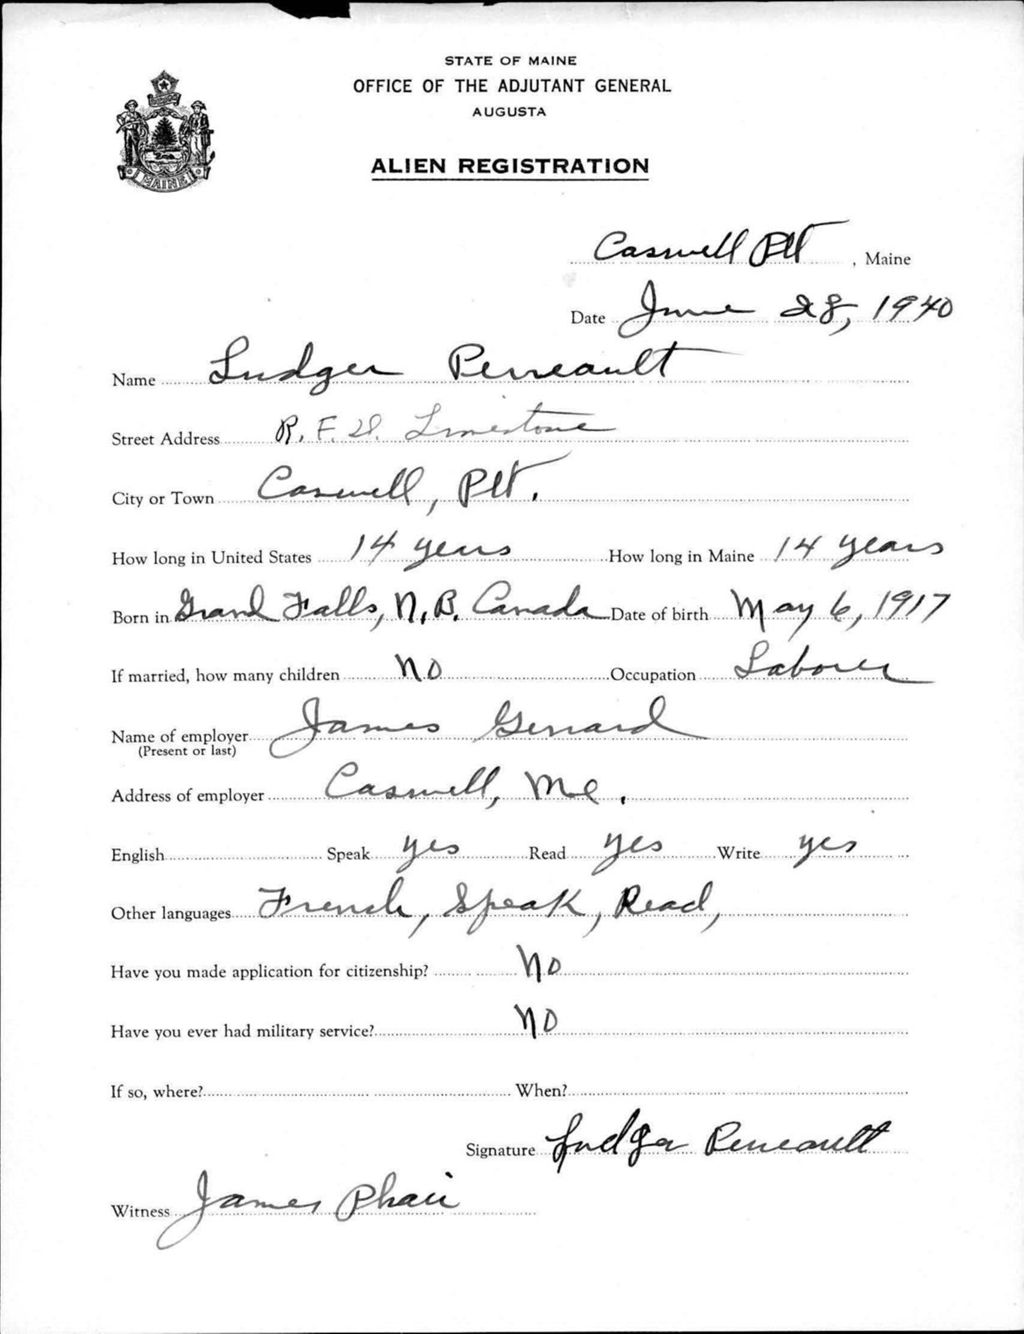 STATE OF MAINE
OFFICE OF THE ADJUTANT GENERAL
AUGUSTA
ALIEN REGISTRATION
MAINE
Caswell Plt, Maine
Date June 28, 1940
Name Ludger Perreault
Street Address R.F.D. Limestone
City or Town Caswell, Plt.
How long in United States 14 years How long in Maine 14 years
Born in Grand Falls, N.B. Canada Date of birth May 6, 1917
If married, how many children No Occupation Laborer
Name of employer James Gerrard
(Present or last)
Address of employer Caswell, Me.
English Speak yes Read yes Write yes
Other languages French, Speak, Read,
Have you made application for citizenship? No
Have you ever had military service? No
If so, where? When?
Signature Ludger Perreault
Witness James Phair